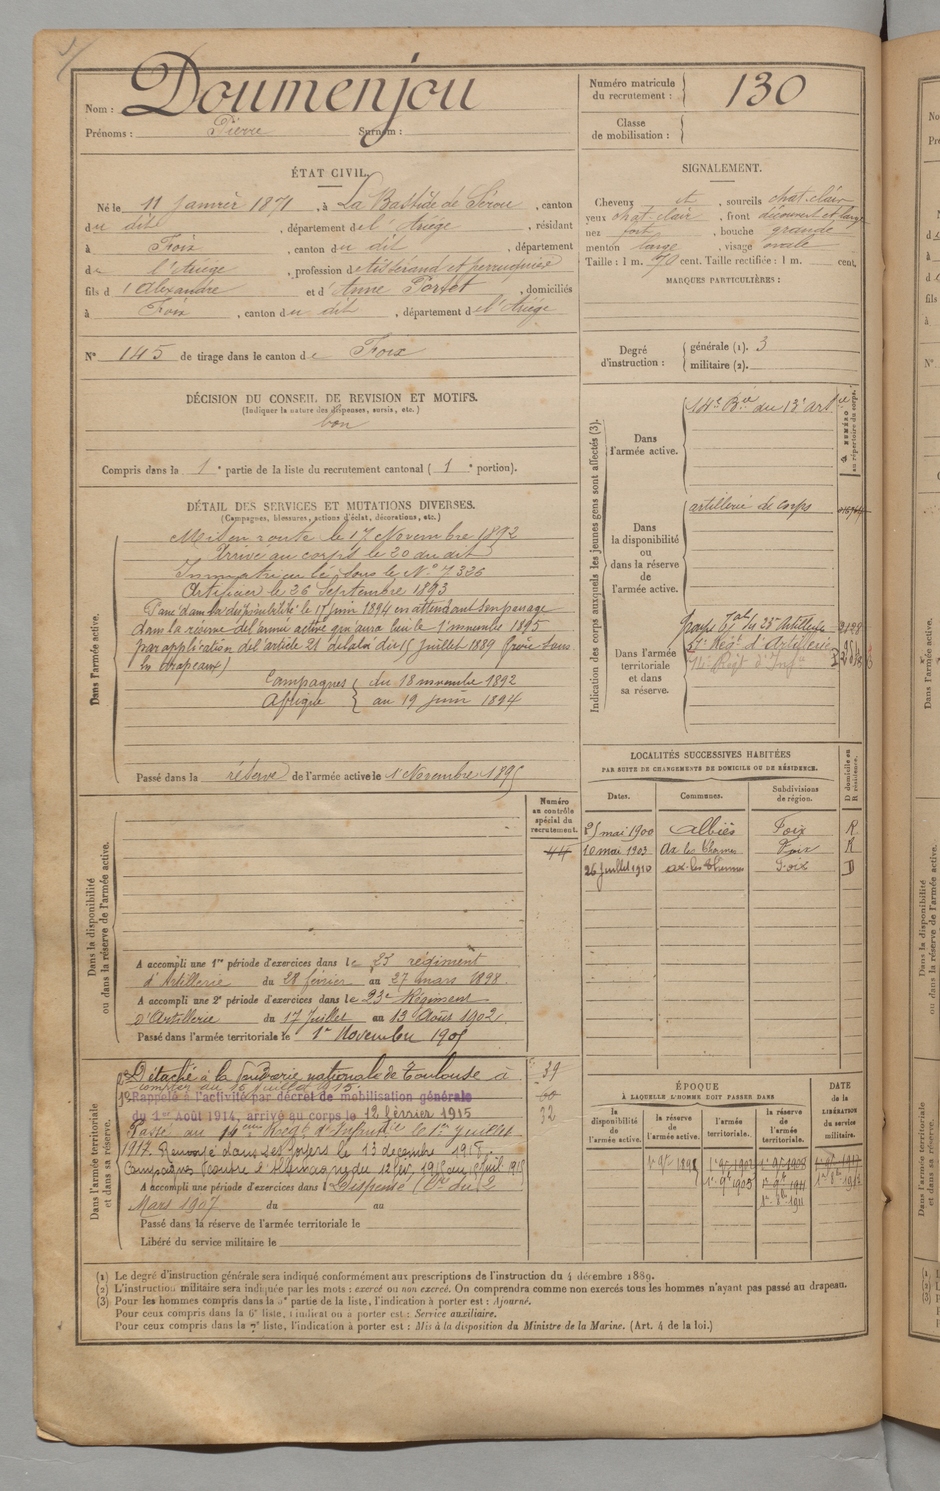 Nom : Doumenjou
Prénoms : Pierre Surnom :
Numéro matricule du recrutement : 130
Classe de mobilisation :
ÉTAT CIVIL.
Né le 11 Janvier 1871, à La Bastide de Sérou, canton
du dit, département de l'Ariège, résidant
à Foix, canton du dit, département
de l'Ariège, profession de Tisserand et perruquier
fils d'Alexandre et d'Anne Portet, domiciliés
à Foix, canton du dit, département de l'Ariège
N° 145 de tirage dans le canton de Foix
DÉCISION DU CONSEIL DE REVISION ET MOTIFS.
(Indiquer la nature des dispenses, sursis, etc.)
bon
Compris dans la 1e partie de la liste du recrutement cantonal (1e portion).
DÉTAIL DES SERVICES ET MUTATIONS DIVERSES.
(Campagnes, blessures, actions d'éclat, décorations, etc.)
Dans l'armée active.
Mis en route le 17 Novembre 1892
Arrivé au corps le 20 du dit
Immatriculé sous le N° 7336
Artificier le 26 Septembre 1893
Passé dans la disponibilité le 17 Juin 1894 en attendant son passage
dans la réserve de l'armée active qui aura lieu le 1 novembre 1895
par application de l'article 21 de la loi du 15 Juillet 1889 (frère sous
les drapeaux)
Campagnes { du 18 novembre 1892
Afrique { au 19 juin 1894
Passé dans la réserve de l'armée active le 1 Novembre 1895
Numéro au contrôle spécial du recrutement.
44
Dans la disponibilité ou dans la réserve de l'armée active.
A accompli une 1re période d'exercices dans le 23 régiment
d'Artillerie du 28 février au 27 mars 1898.
A accompli une 2e période d'exercices dans le 23e Régiment
d'Artillerie du 17 Juillet au 13 Août 1902.
Passé dans l'armée territoriale le 1er Novembre 1905
Dans l'armée territoriale et dans sa réserve.
Détaché à la Poudrerie nationale de Toulouse à
compter du 16 juillet 1915.
Rappelé à l'activité par décret de mobilisation générale
du 1er Août 1914, arrivé au corps le 12 février 1915
Passé au 14eme Regt d'Infanterie le 1er Juillet
1917. Renvoyé dans ses foyers le 13 décembre 1918.
Campagnes contre l'Allemagne du 12 fév. 1915 au
A accompli une période d'exercices dans l Dispensé du 2
Mars 1907 du au
Passé dans la réserve de l'armée territoriale le
Libéré du service militaire le
39
32
SIGNALEMENT.
Cheveux et, sourcils chat. clair
yeux chat. clair, front découvert et large
nez fort, bouche grande
menton large, visage ovale
Taille : 1 m. 70 cent. Taille rectifiée : 1 m. cent.
MARQUES PARTICULIÈRES :
Degré d'instruction : { générale (1). 3
militaire (2).
Indication des corps auxquels les jeunes gens sont affectés (3).
NUMÉRO au répertoire du corps.
Dans l'armée active.
14e Bie du 13e Artie
Dans la disponibilité ou dans la réserve de l'armée active.
artillerie de corps
Dans l'armée territoriale et dans sa réserve.
Groupe Tal du 23e Artillerie
Régt d'Artillerie
14e Régt d'Infie
LOCALITÉS SUCCESSIVES HABITÉES
PAR SUITE DE CHANGEMENTS DE DOMICILE OU DE RÉSIDENCE.
Dates. Communes. Subdivisions de région. D domicile ou R résidence.
25 mai 1900 Albiès Foix R
10 mai 1903 Ax les Thermes Foix R
26 Juillet 1910 Ax-les-Thermes Foix D
ÉPOQUE
À LAQUELLE L'HOMME DOIT PASSER DANS
DATE DE LA LIBÉRATION du service militaire.
la disponibilité de l'armée active. la réserve de l'armée active. l'armée territoriale. la réserve de l'armée territoriale.
1er 9bre 1895 1er 9bre 1902 1er 9bre 1908
1er 9bre 1905 1er 9bre 1911
(1) Le degré d'instruction générale sera indiqué conformément aux prescriptions de l'instruction du 4 décembre 1889.
(2) L'instruction militaire sera indiquée par les mots : exercé ou non exercé. On comprendra comme non exercés tous les hommes n'ayant pas passé au drapeau.
(3) Pour les hommes compris dans la 5e partie de la liste, l'indication à porter est : Ajourné.
Pour ceux compris dans la 6e liste, l'indication à porter est : Service auxiliaire.
Pour ceux compris dans la 7e liste, l'indication à porter est : Mis à la disposition du Ministre de la Marine. (Art. 4 de la loi.)